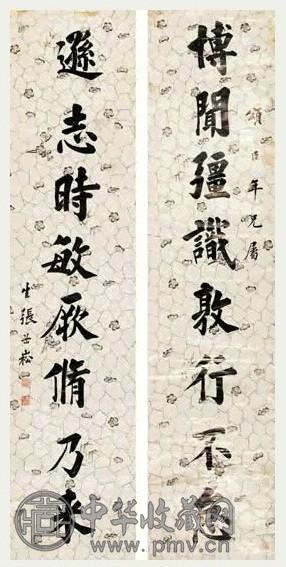 頌臣年兄屬
博聞彊識敦行不怠
遜志時敏厥脩乃來
張岳崧
中华收藏网
www.pmv.cn